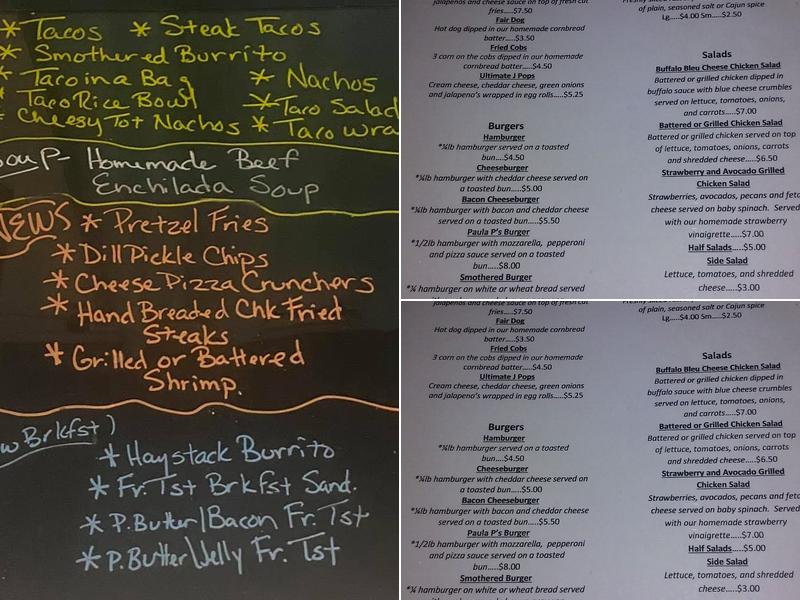 * Tacos * Steak Tacos
* Smothered Burrito
* Taco in a Bag * Nachos
Taco Rice Bowl * Taco Salad
* Cheesy Tot Nachos * Taco Wra
Soup - Homemade Beef
Enchilada Soup
NEWS * Pretzel Fries
* Dill Pickle Chips
* Cheese Pizza Crunchers
* Hand Breaded Chk Fried
Steaks
* Grilled or Battered
Shrimp.
w Brkfst)
* Haystack Burrito
* Fr. Tst Brkfst Sand.
* P. Butter/Bacon Fr. Tst
* P. Butter/Jelly Fr. Tst
jalapenos and cheese sauce on top of fresh cut
fries.....$7.50
Fair Dog
Hot dog dipped in our homemade cornbread
batter.....$3.50
Fried Cobs
3 corn on the cobs dipped in our homemade
cornbread batter.....$4.50
Ultimate J Pops
Cream cheese, cheddar cheese, green onions
and jalapeno's wrapped in egg rolls.....$5.25
Burgers
Hamburger
*¼lb hamburger served on a toasted
bun.....$4.50
Cheeseburger
*¼lb hamburger with cheddar cheese served on
a toasted bun.....$5.00
Bacon Cheeseburger
*¼lb hamburger with bacon and cheddar cheese
served on a toasted bun.....$5.50
Paula P's Burger
*1/2lb hamburger with mozzarella, pepperoni
and pizza sauce served on a toasted
bun.....$8.00
Smothered Burger
*¼ hamburger on white or wheat bread served
of plain, seasoned salt or Cajun spice
Lg.....$4.00 Sm.....$2.50
Salads
Buffalo Bleu Cheese Chicken Salad
Battered or grilled chicken dipped in
buffalo sauce with blue cheese crumbles
served on lettuce, tomatoes, onions,
and carrots.....$7.00
Battered or Grilled Chicken Salad
Battered or grilled chicken served on top
of lettuce, tomatoes, onions, carrots
and shredded cheese.....$6.50
Strawberry and Avocado Grilled
Chicken Salad
Strawberries, avocados, pecans and feta
cheese served on baby spinach. Served
with our homemade strawberry
vinaigrette.....$7.00
Half Salads.....$5.00
Side Salad
Lettuce, tomatoes, and shredded
cheese.....$3.00
jalapenos and cheese sauce on top of fresh cut
fries.....$7.50
Fair Dog
Hot dog dipped in our homemade cornbread
batter.....$3.50
Fried Cobs
3 corn on the cobs dipped in our homemade
cornbread batter.....$4.50
Ultimate J Pops
Cream cheese, cheddar cheese, green onions
and jalapeno's wrapped in egg rolls.....$5.25
Burgers
Hamburger
*¼lb hamburger served on a toasted
bun.....$4.50
Cheeseburger
*¼lb hamburger with cheddar cheese served on
a toasted bun.....$5.00
Bacon Cheeseburger
*¼lb hamburger with bacon and cheddar cheese
served on a toasted bun.....$5.50
Paula P's Burger
*1/2lb hamburger with mozzarella, pepperoni
and pizza sauce served on a toasted
bun.....$8.00
Smothered Burger
*¼ hamburger on white or wheat bread served
of plain, seasoned salt or Cajun spice
Lg.....$4.00 Sm.....$2.50
Salads
Buffalo Bleu Cheese Chicken Salad
Battered or grilled chicken dipped in
buffalo sauce with blue cheese crumbles
served on lettuce, tomatoes, onions,
and carrots.....$7.00
Battered or Grilled Chicken Salad
Battered or grilled chicken served on top
of lettuce, tomatoes, onions, carrots
and shredded cheese.....$6.50
Strawberry and Avocado Grilled
Chicken Salad
Strawberries, avocados, pecans and feta
cheese served on baby spinach. Served
with our homemade strawberry
vinaigrette.....$7.00
Half Salads.....$5.00
Side Salad
Lettuce, tomatoes, and shredded
cheese.....$3.00